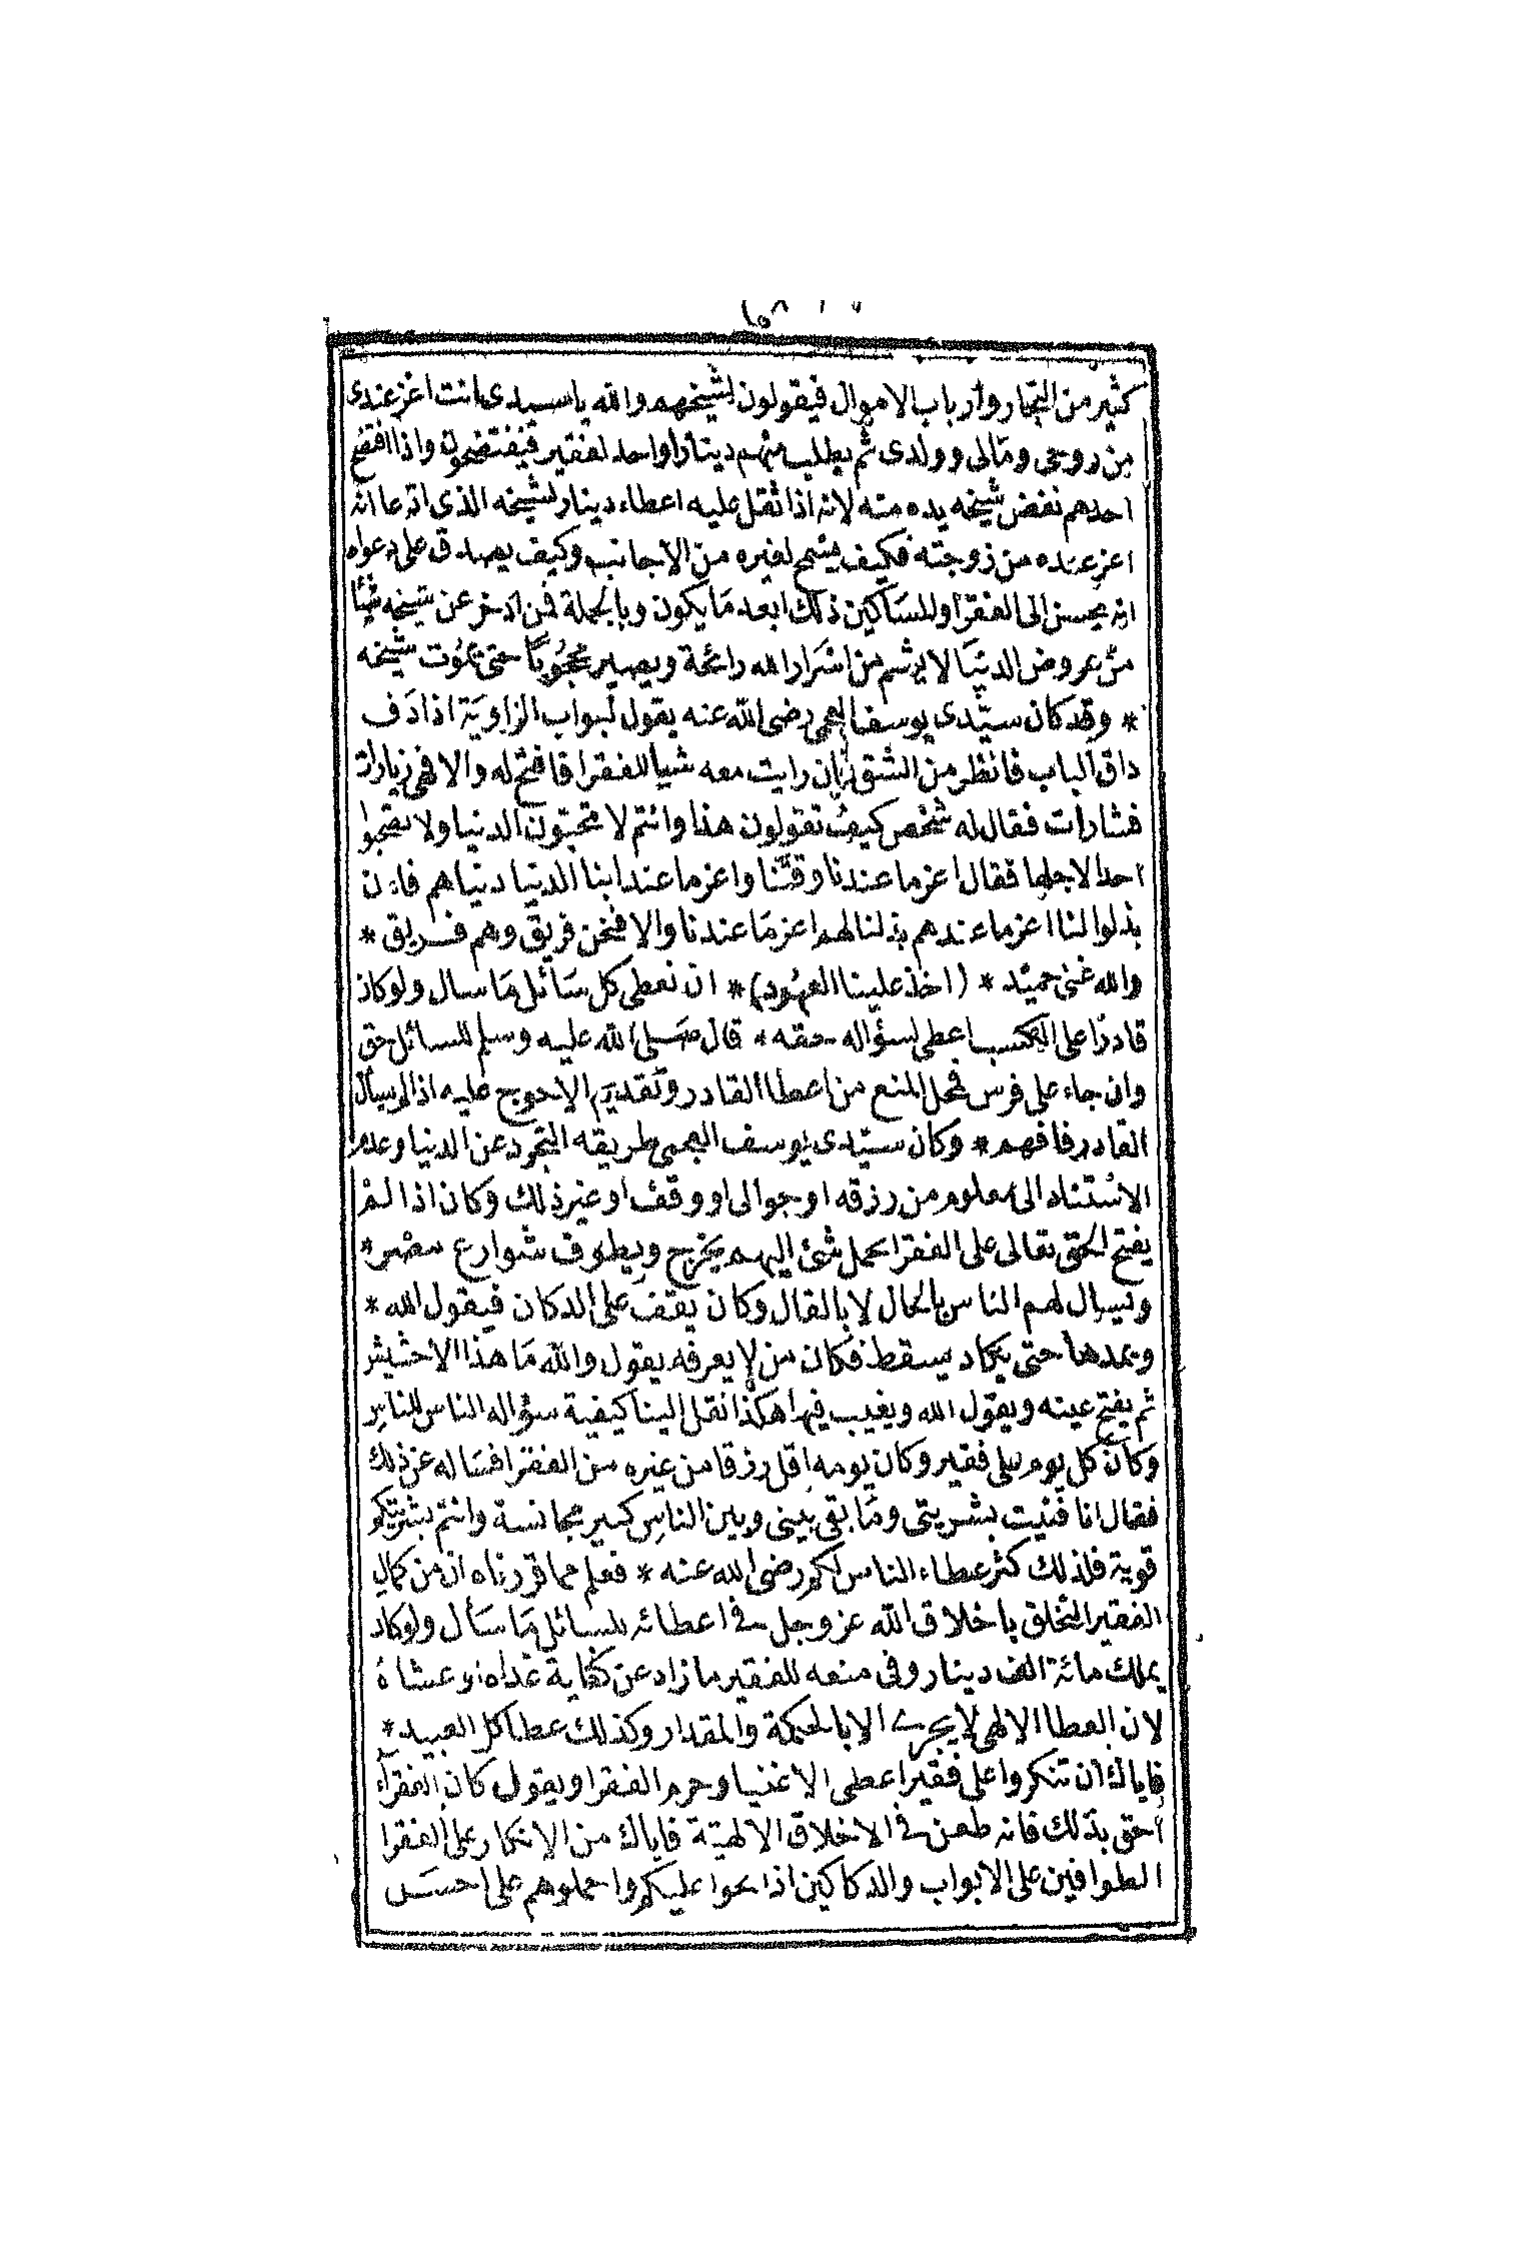 كثير من التجار وأرباب الاموال فيقولون لشيخهم والله ياسيدى انت اعز عندى
من روحى ومالى وولدى ثم يطلب منهم دينارا واحد لفقير فيفتضحون واذا افتضح
احدهم نفض شيخه يده منه لانه اذا ثقل عليه اعطاء دينار لشيخه الذى ادعا انه
اعز عنده من زوجته فكيف يسمح لغيره من الاجانب وكيف يصدق على دعواه
انه يحسن الى الفقرا والمساكين ذلك ابعد ما يكون وبالجملة فمن ادخر عن شيخه شيئا
من عروض الدنيا لا يشم من اسرار الله رائحة ويصير محجوبا حتى يموت شيخه
* وقد كان سيّدى يوسف العجمى رضى الله عنه يقول لبواب الزاوية اذا دق
داق الباب فانظر من الشق فان رايت معه شيا للفقرا فافتح له والا فهى زيارات
فشارات فقال له شخص كيف تقولون هذا وانتم لا تحبون الدنيا ولا تصحبوا
احدا لاجلها فقال اعز ما عندنا وقتنا واعز ما عند ابنا الدنيا دنياهم فان
بذلوا لنا اعز ما عندهم بذلنا لهم اعز ما عندنا والا فنحن فريق وهم فريق *
والله غنى حميد * (اخذ علينا العهود) * ان نعطى كل سائل ما سال ولو كان
قادرا على الكسب اعطى لسؤاله حقه * قال صلى الله عليه وسلم للسائل حق
وان جاء على فرس فحل المنع من اعطا القادر وتقديم الاحوج عليه اذا لم يسأل
القادر فافهم * وكان سيّدى يوسف العجمى طريقه التجرد عن الدنيا وعدم
الاستناد الى معلوم من رزقه او جوالى او وقف او غير ذلك وكان اذا لم
يفتح الحق تعالى على الفقرا بحمل شئ اليهم يخرج ويطوف شوارع مصر *
ويسال لهم الناس بالحال لا بالقال وكان يقف على الدكان فيقول الله *
ويمدها حتى يكاد يسقط فكان من لا يعرفه يقول والله ما هذا الا حشيش
ثم يفتح عينه ويقول الله ويغيب فيها هكذا نقل الينا كيفية سؤاله الناس للناس
وكان كل يوم على فقير وكان يومه اقل رزقا من غيره من الفقرا فساله عن ذلك
فقال انا فنيت بشريتى وما بقى بينى وبين الناس كبير مجانسة وانتم بشريتكم
قوية فلذلك كثر عطاء الناس لكم رضى الله عنه * فعلم مما قررناه ان من كمال
الفقير التخلق باخلاق الله عز وجل فى اعطائه للسائل ما سأل ولو كان
يملك مائة الف دينار وفى منعه للفقير ما زاد عن كفاية غداه او عشاه
لان العطا الالهى لا يجرى الا بالحكمة والمقدار وكذلك عطا كل العبيد *
فاياك ان تنكروا على فقير اعطى الاغنيا وحرم الفقرا ويقول كان الفقراء
احق بذلك فانه طعن فى الاخلاق الالهية فاياك من الانكار على الفقرا
الطوافين على الابواب والدكاكين اذا عليكم واحملوهم على احسن